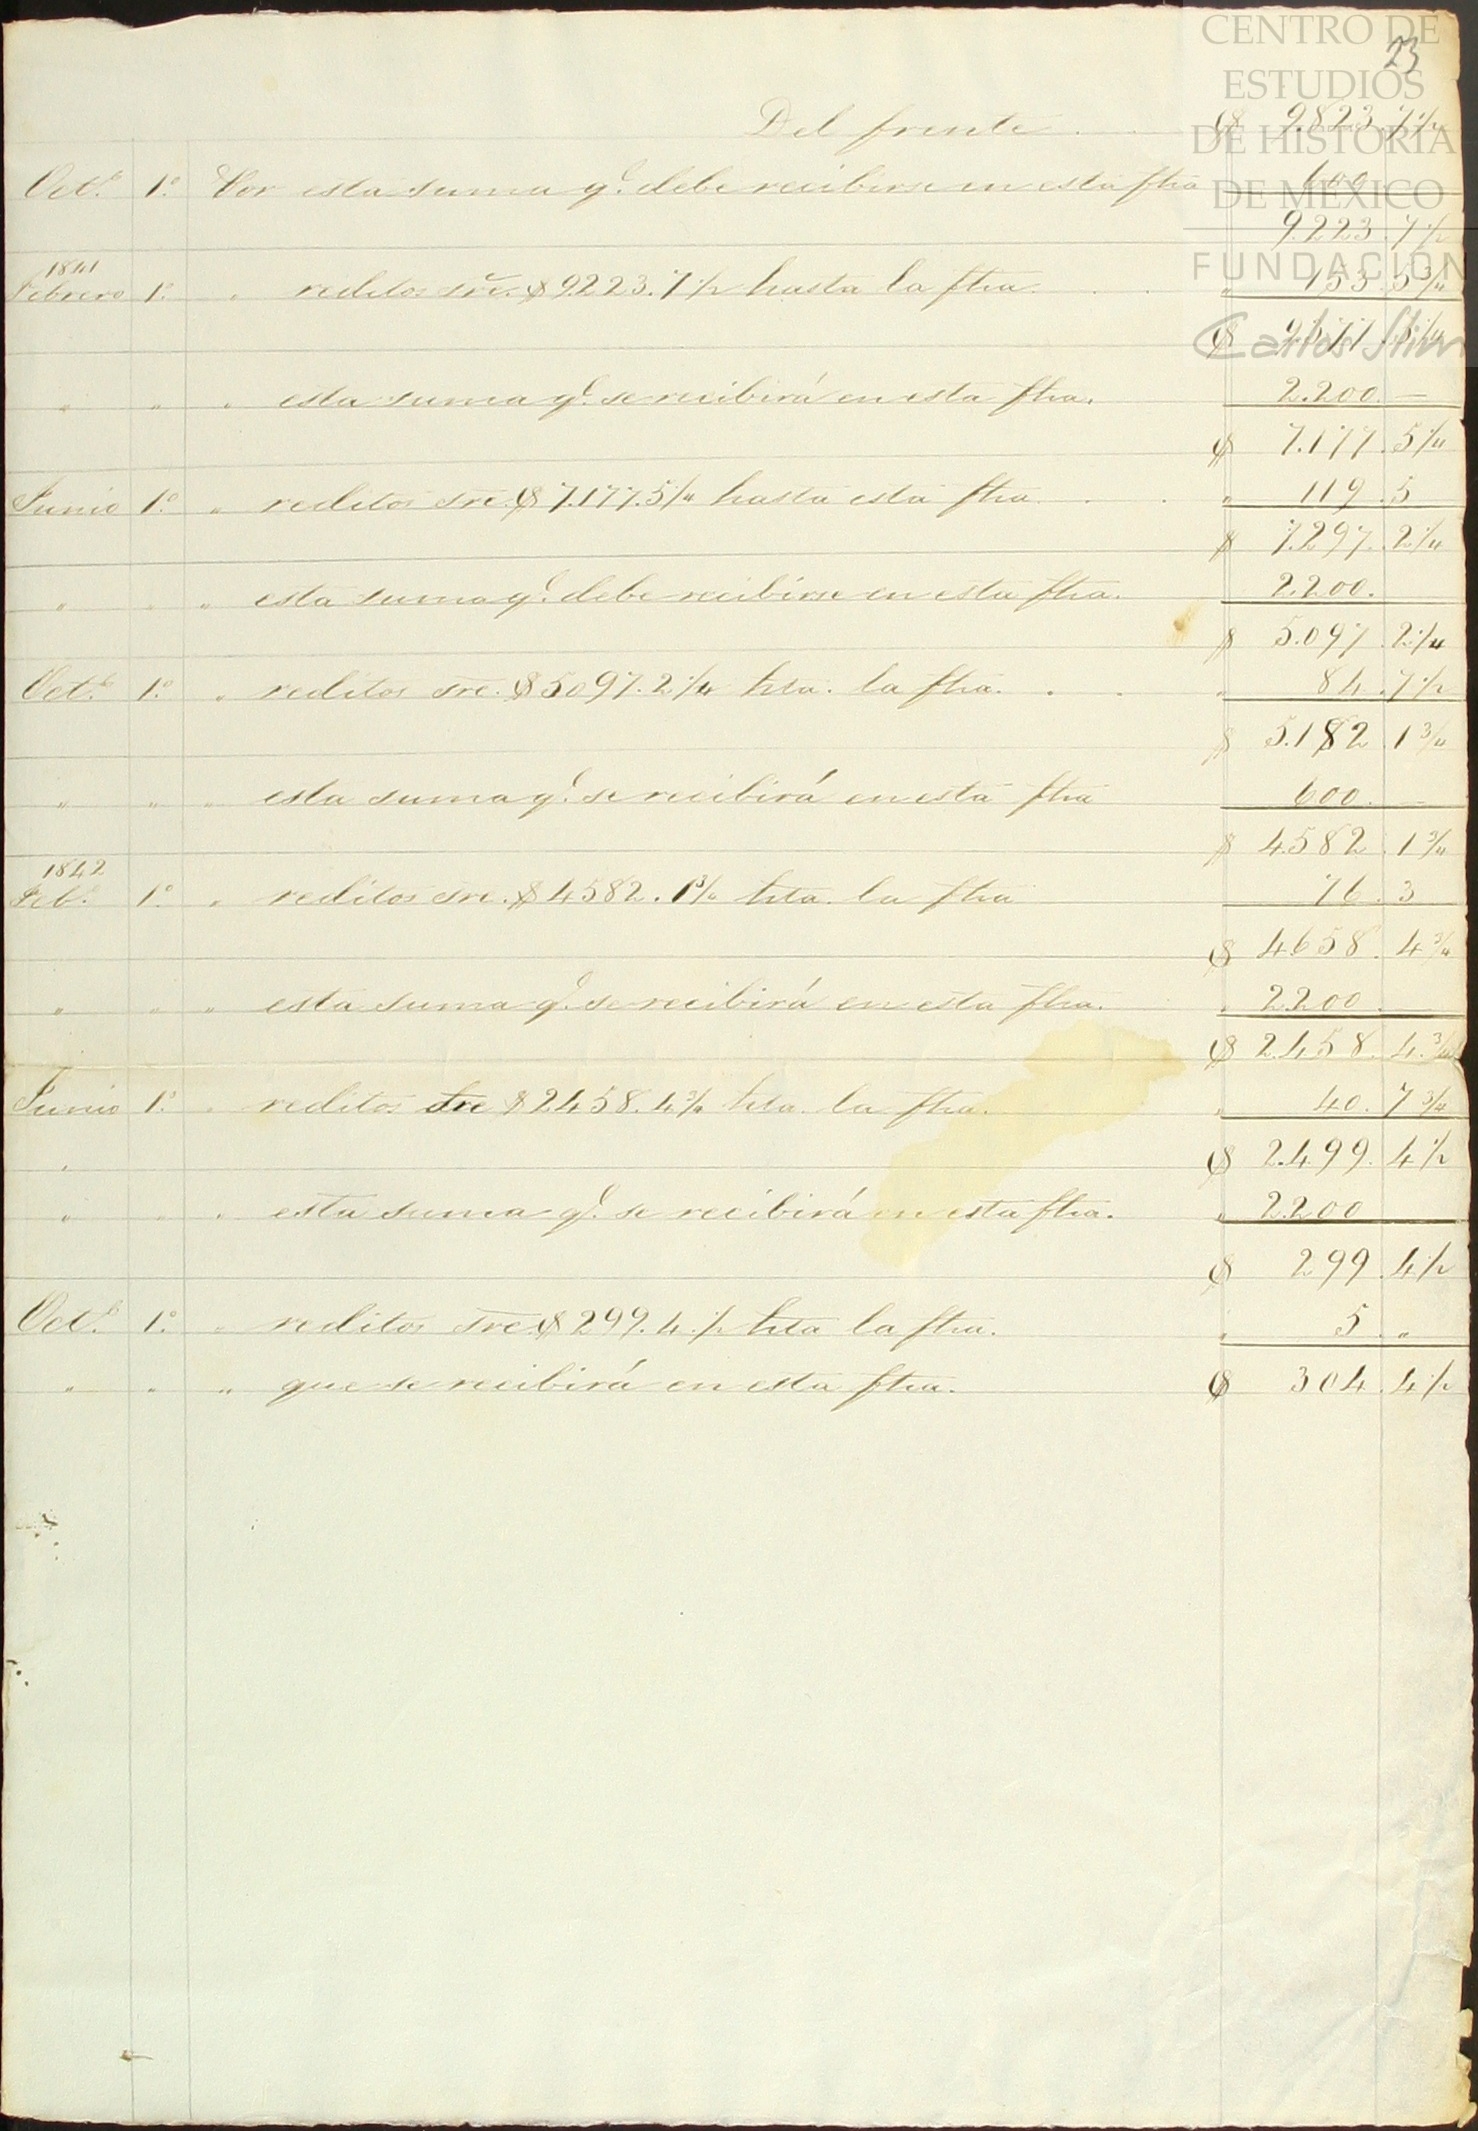 CENTRO DE
ESTUDIOS
DE HISTORIA
DE MÉXICO
FUNDACIÓN
Carlos Slim
23
Del frente . . $ 9.823. 7 1/2
Oct.e 1.o Por esta suma q.e debe recibirse en esta fha 600
9.223. 7 1/2
1841
Febrero 1.o " reditos sre. $ 9223. 7 1/2 hasta la fha. . . " 153. 5 3/4
$ 9.377. 5 1/4
" " " esta suma q.e se recibirá en esta fha. 2.200. —
$ 7.177. 5 1/4
Junio 1.o " reditos sre. $ 7.177. 5 1/4 hasta esta fha . . . " 119. 5
$ 7.297. 2 1/4
" " " esta suma q.e debe recibirse en esta fha. 2.200.
$ 5.097. 2 1/4
Oct.e 1.o " reditos sre. $ 5097. 2 1/4 hta. la fha. . . " 84. 7 1/2
$ 5.182. 1 3/4
" " " esta suma q.e se recibirá en esta fha 600. —
$ 4582. 1 3/4
1842
Feb.o 1.o " reditos sre. $ 4582. 1 3/4 hta. la fha 76. 3
$ 4.658. 4 3/4
" " " esta suma q.e se recibirá en esta fha. " 2.200 —
$ 2.458. 4. 3/4
Junio 1.o " reditos sre $ 2458. 4 3/4 hta. la fha. " 40. 7 3/4
" $ 2.499. 4 1/2
" " " esta suma q.e se recibirá en esta fha. " 2.200
$ 299. 4 1/2
Oct.e 1.o " reditos sre. $ 299. 4. 1/2 hta la fha. " 5. "
" " " que se recibirá en esta fha. $ 304. 4 1/2